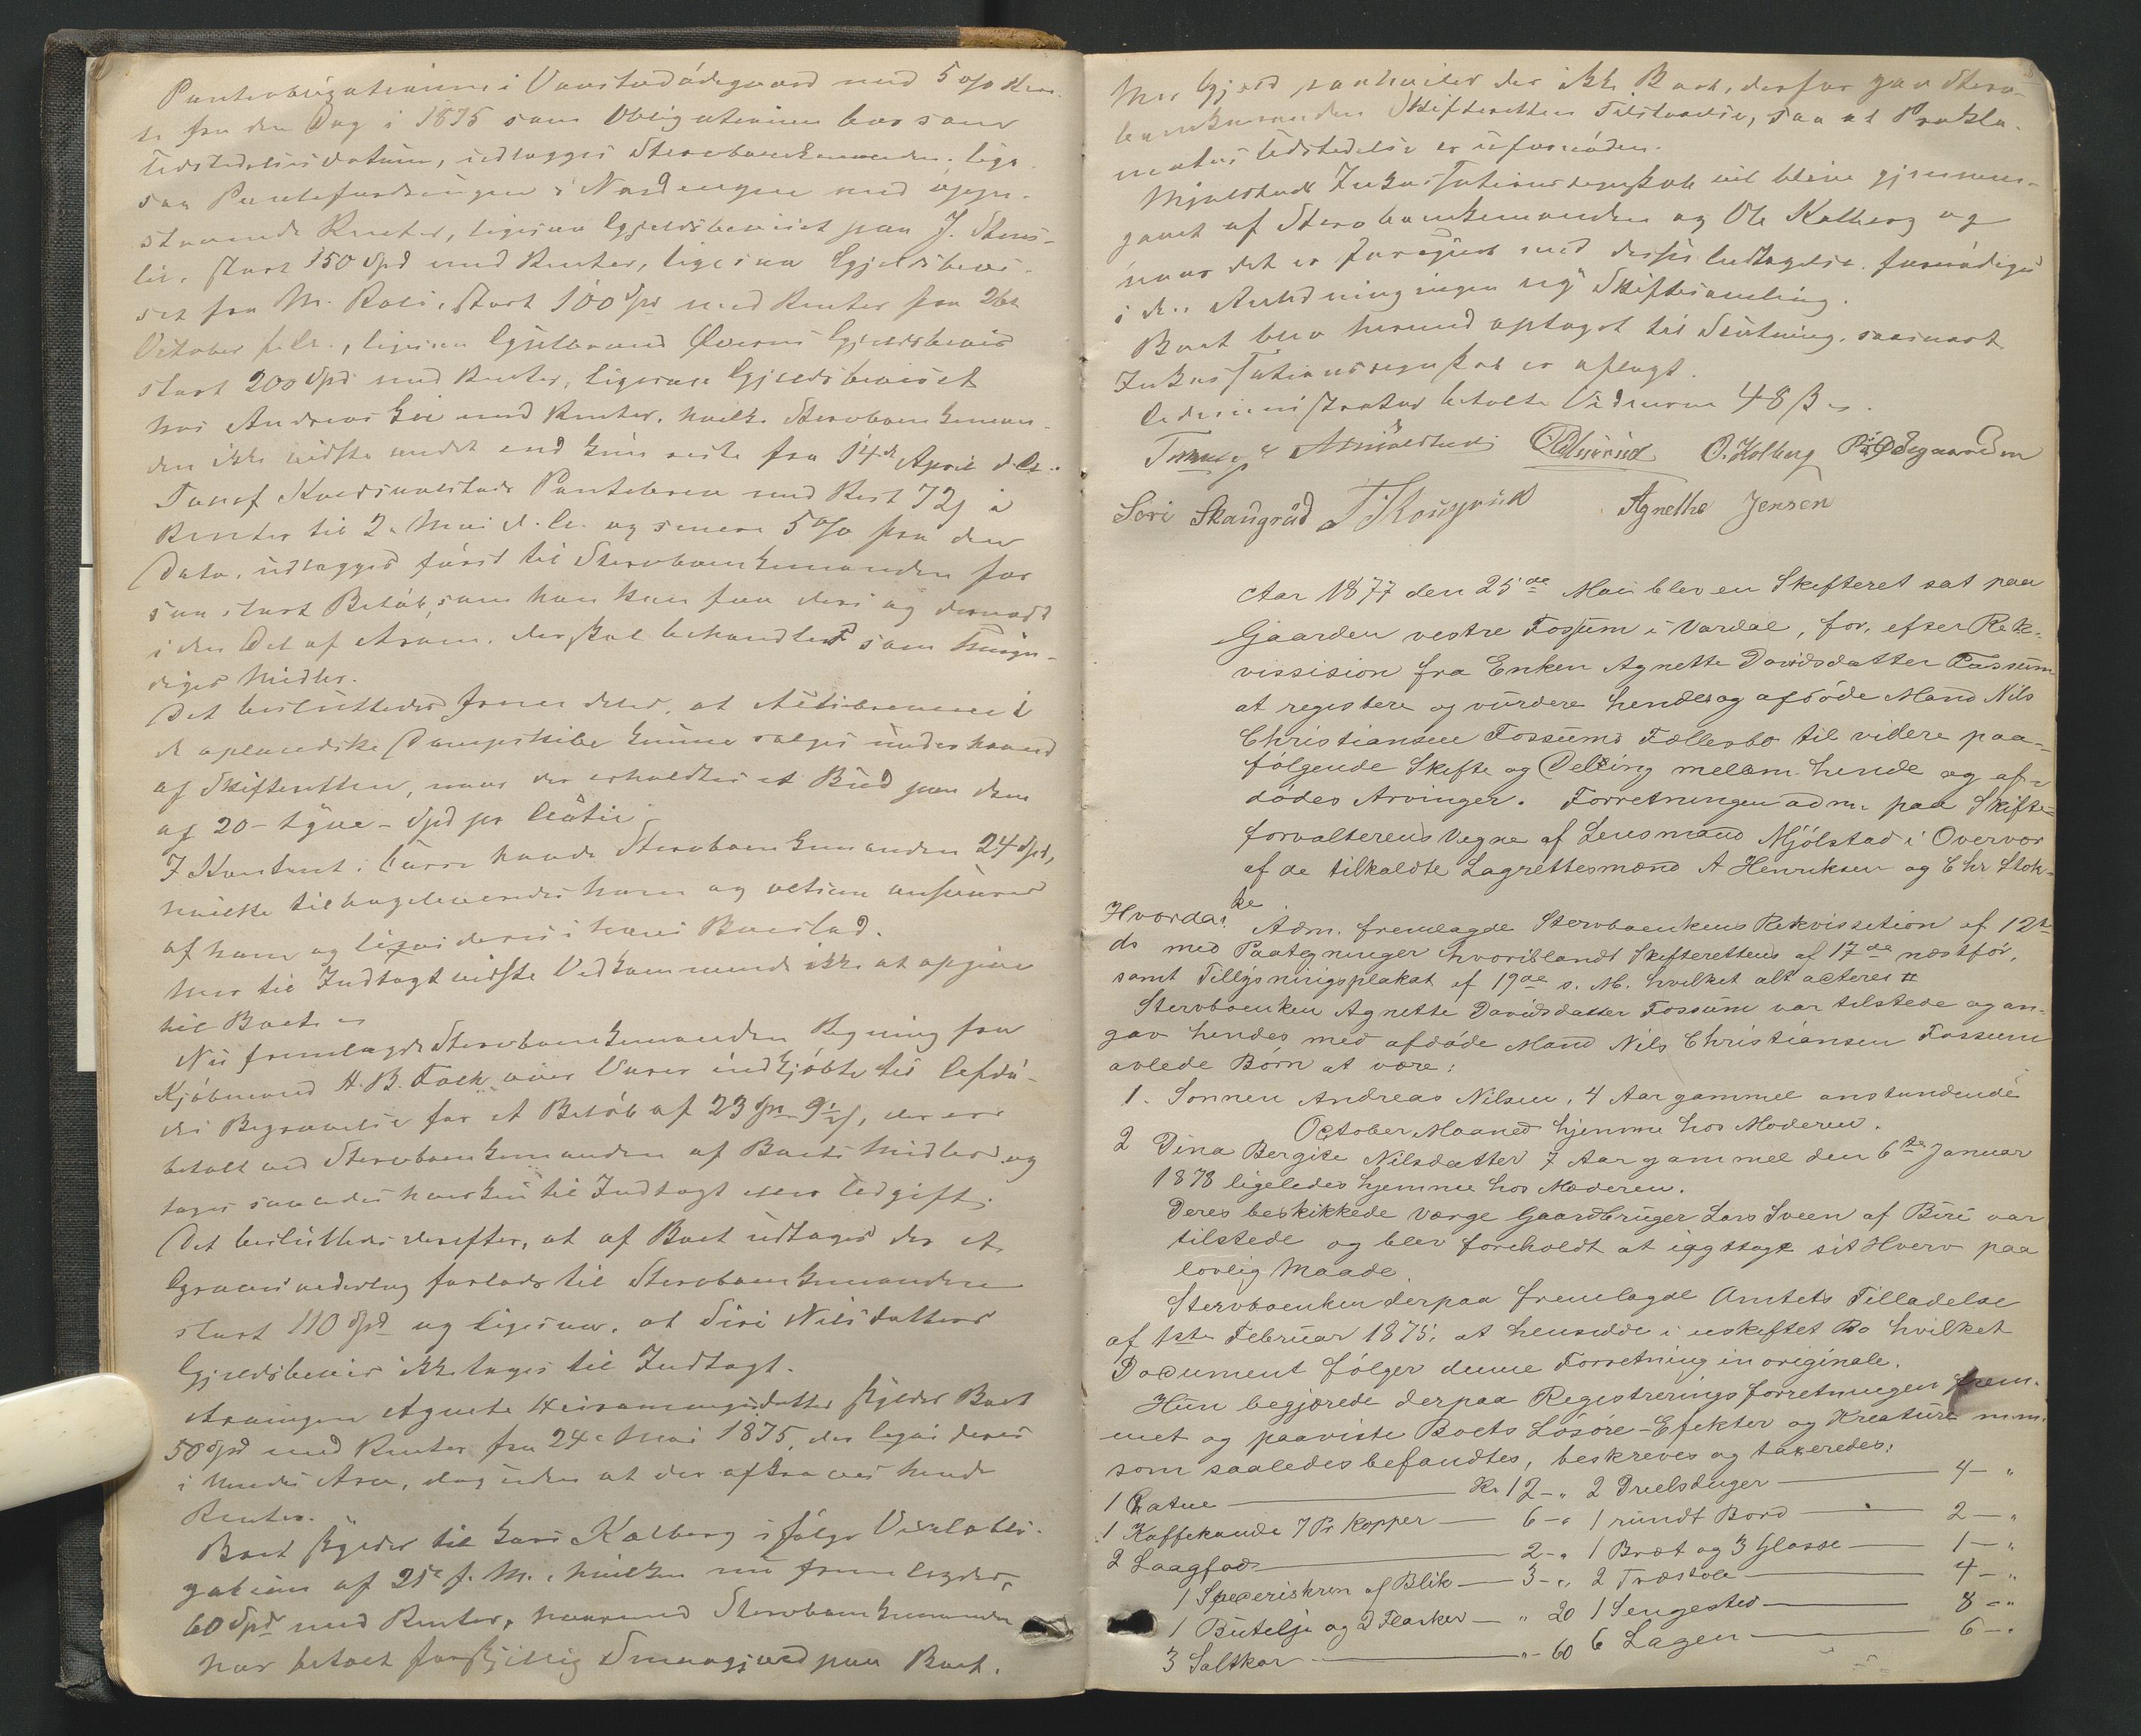 Panteobligationen i Vaarstadødegaard med 5 % Ren-
te fra den Dag i 1875 som Obligationen har som
Udstedelsesdatum, udlægges Stervboenkemanden. lige-
saa Pantefordringen i Nordengen med
staaende Renter, ligesaa Gjeldsbeviset paa J. Stens-
lie, stort 150 Spd med Renter, ligesaa Gjeldsbevi-
set fra M. stort 100 Spd med Renter fra 26de
October f. A., ligesaa Gulbrand Gjeldsbevis
stort 200 Spd med Renter, ligesaa Gjeldsbeviset
hos Andreas med Renter, hvilke Stervboenkeman-
den ikke vidste andet end fra 14de April d. A.
Pantebrev med Rest 72 i
Renter til 2. Mai d. A. og senere 5 % fra den
Dato, udlægges først til Stervboenkemanden for
saa stort Beløb, som han kan faa deri og dernæst
i den Del af Arven, der skal behandles som Myn-
diges Midler.
Det besluttedes fremdeles, at Actiebrevene i
de oplandske Dampskibe kunne sælges underhaand
af Skifteretten, naar der erholdtes et Bud paa dem
af 20 - tyve - Spd pr Actie
I Kontant havde Stervboenkemanden 24 Spd,
hvilke tilbageleveredes ham og
af ham og i hans Boeslod.
Mer til Indtægt vidste Vedkommende ikke at opgive
til Boet.
Nu fremlagde Stervboenkemanden Regning fra
Kjøbmand H. B. Falk over Varer indkjøbte til Afdø-
des Begravelse for et Beløb af 23 Spd 9½ s, der er
betalt ved Stervboenkemanden af Boets Midler og
tages saaledes hverken til Indtægt eller Udgift.
Det besluttedes derefter, at af Boet udtages der et
forlods til Stervboenkemanden
stort 110 Spd og ligesaa, at Siri Nilsdatters
Gjeldsbevis ikke tages til Indtægt.
Arvingen Agnete skylder Boet
50 Spd med Renter fra 24de Mai 1875, der
i hendes Arv, dog uden at der afkræves hende
Renter.
Boet skylder til Kari Kolberg ifølge Vexelobli-
gation af 25de f. M., hvilken nu fremlægdes,
60 Spd med Renter, hvorimod Stervboenkemanden
har betalt forskjellig Smaagjæld paa Boet.
Mer Gjæld paahviler der ikke Boet, derfor gav Sterv-
boenkemanden Skifteretten Tilstaaelse, saa at Prokla-
matas Udstedelse er ufornøden.
Mjølstads Inkassationsregnskab vil blive gjennem-
gaaet af Stervboenkemanden og Ole Kolberg og
naar det er foregaaet med deres Vedtagelse, fornødiges
i den Anledning ingen ny Skiftesamling.
Boet blev hermed optaget til Slutning, saasnart
Inkassationsregnskab er aflagt.
Administrator betalte Vidnerne 48 s.
O. Kolberg P. Ødegaarden
Siri Skaugrud Agnethe Jensen
Aar 1877 den 25de Mai blev en Skifteret sat paa
Gaarden vestre Fossum i Vardal, for, efter Rek-
vissision fra Enken Agnette Davidsdatter Fossum
at registere og vurdere hendes og afdøde Mand Nils
Christiansen Fossums Fællesbo til videre paa-
følgende Skifte og Deling mellem hende og af-
dødes Arvinger. Forretningen adm. paa Skifte-
forvalterens Vegne af Lensmand Mjölstad i Overvær
af de tilkaldte Lagrettesmænd A Henriksen og Chr Stok-
ke
Hvorda: Adm. fremlagde Stervboenkens Rekvissetion af 12te
ds med Paategninger hvoriblandt Skifterettens af 17de næstfør,
samt Tillysningsplakat af 19de s. M. hvilket alt acteres
Stervboenken Agnette Davidsdatter Fossum var tilstede og an-
gav hendes med afdøde Mand Nils Christiansen Fossum
avlede Børn at være:
1. Sønnen Andreas Nilsen, 4 Aar gammel anstundende
October Maaned hjemme hos Moderen.
2 Dina Bergite Nilsdatter 7 Aar gammel den 6te Januar
1878 ligeledes hjemme hos Moderen.
Deres beskikkede Værge Gaardbruger Lars Sveen af Biri var
tilstede og blev foreholdt at iagttage sit Hverv paa
lovlig Maade.
Stervboenken derpaa fremlagde Amtets Tilladelse
af 1ste Februar 1875. at hensidde i uskiftet Bo hvilket
Document følger denne Forretning in originale.
Hun begjærede derpaa Registreringsforretningen frem-
met og paaviste Boets Løsøre-Efekter og Kreature m.m.
som saaledes befandtes, beskreves og taxeredes:
1 Katue — Kr. 12 - „ 2 Dreelsduger — 4 - „
1 Kaffekande 7 Pr Kopper — 6 - „ 1 rundt Bord — 2 - „
2 Laagfad — 2 - „ 1 Bræt og 3 Glasse — 1 - „
1 Speceriskrin af Blik — 3 - „ 2 Træstole — 4 - „
1 Butelje og 2 Flasker — „ 20 1 Sengested — 8 - „
3 Saltkar — „ - 60 6 Lagen — 6 - „